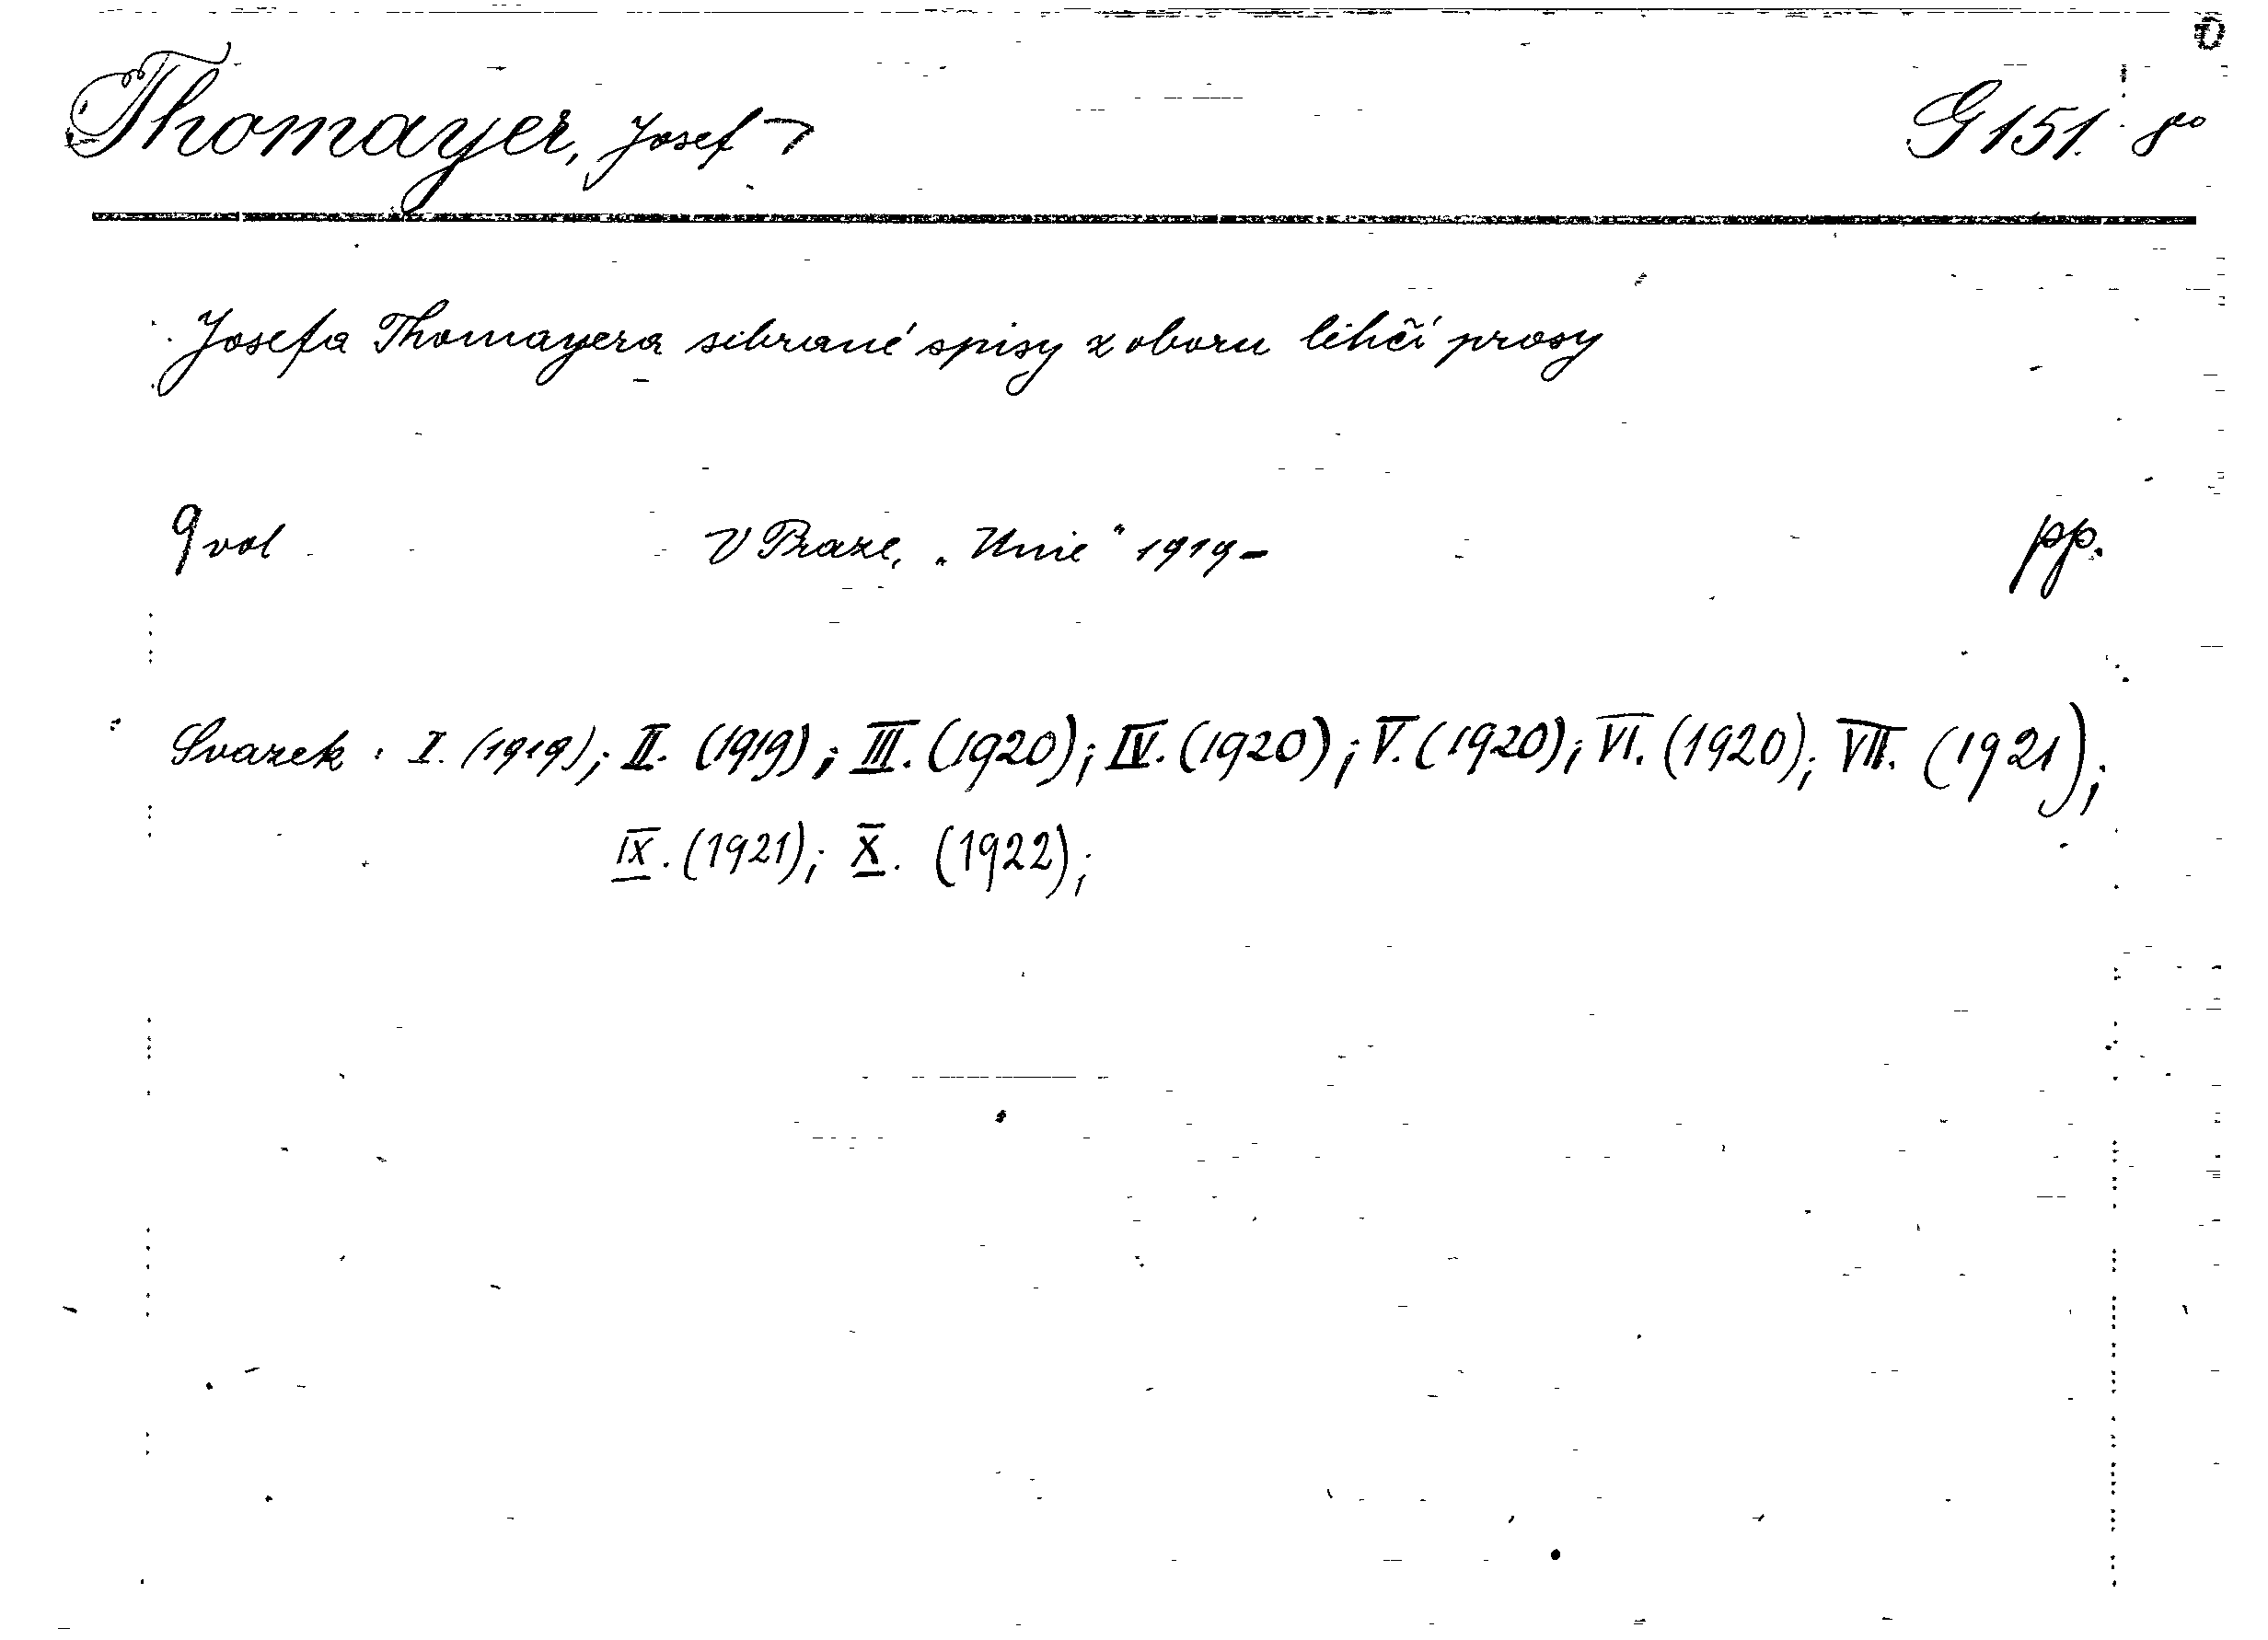 Thomayer, Josef G 151. 8o
Josefa Thomayera sebrané spisy z oboru lehčí prosy
9 vol V Praze, „Unie“ 1919- pp.
Svazek: I. (1919); II. (1919); III. (1920); IV. (1920); V. (1920); VI. (1920); VII. (1921);
IX. (1921); X. (1922);